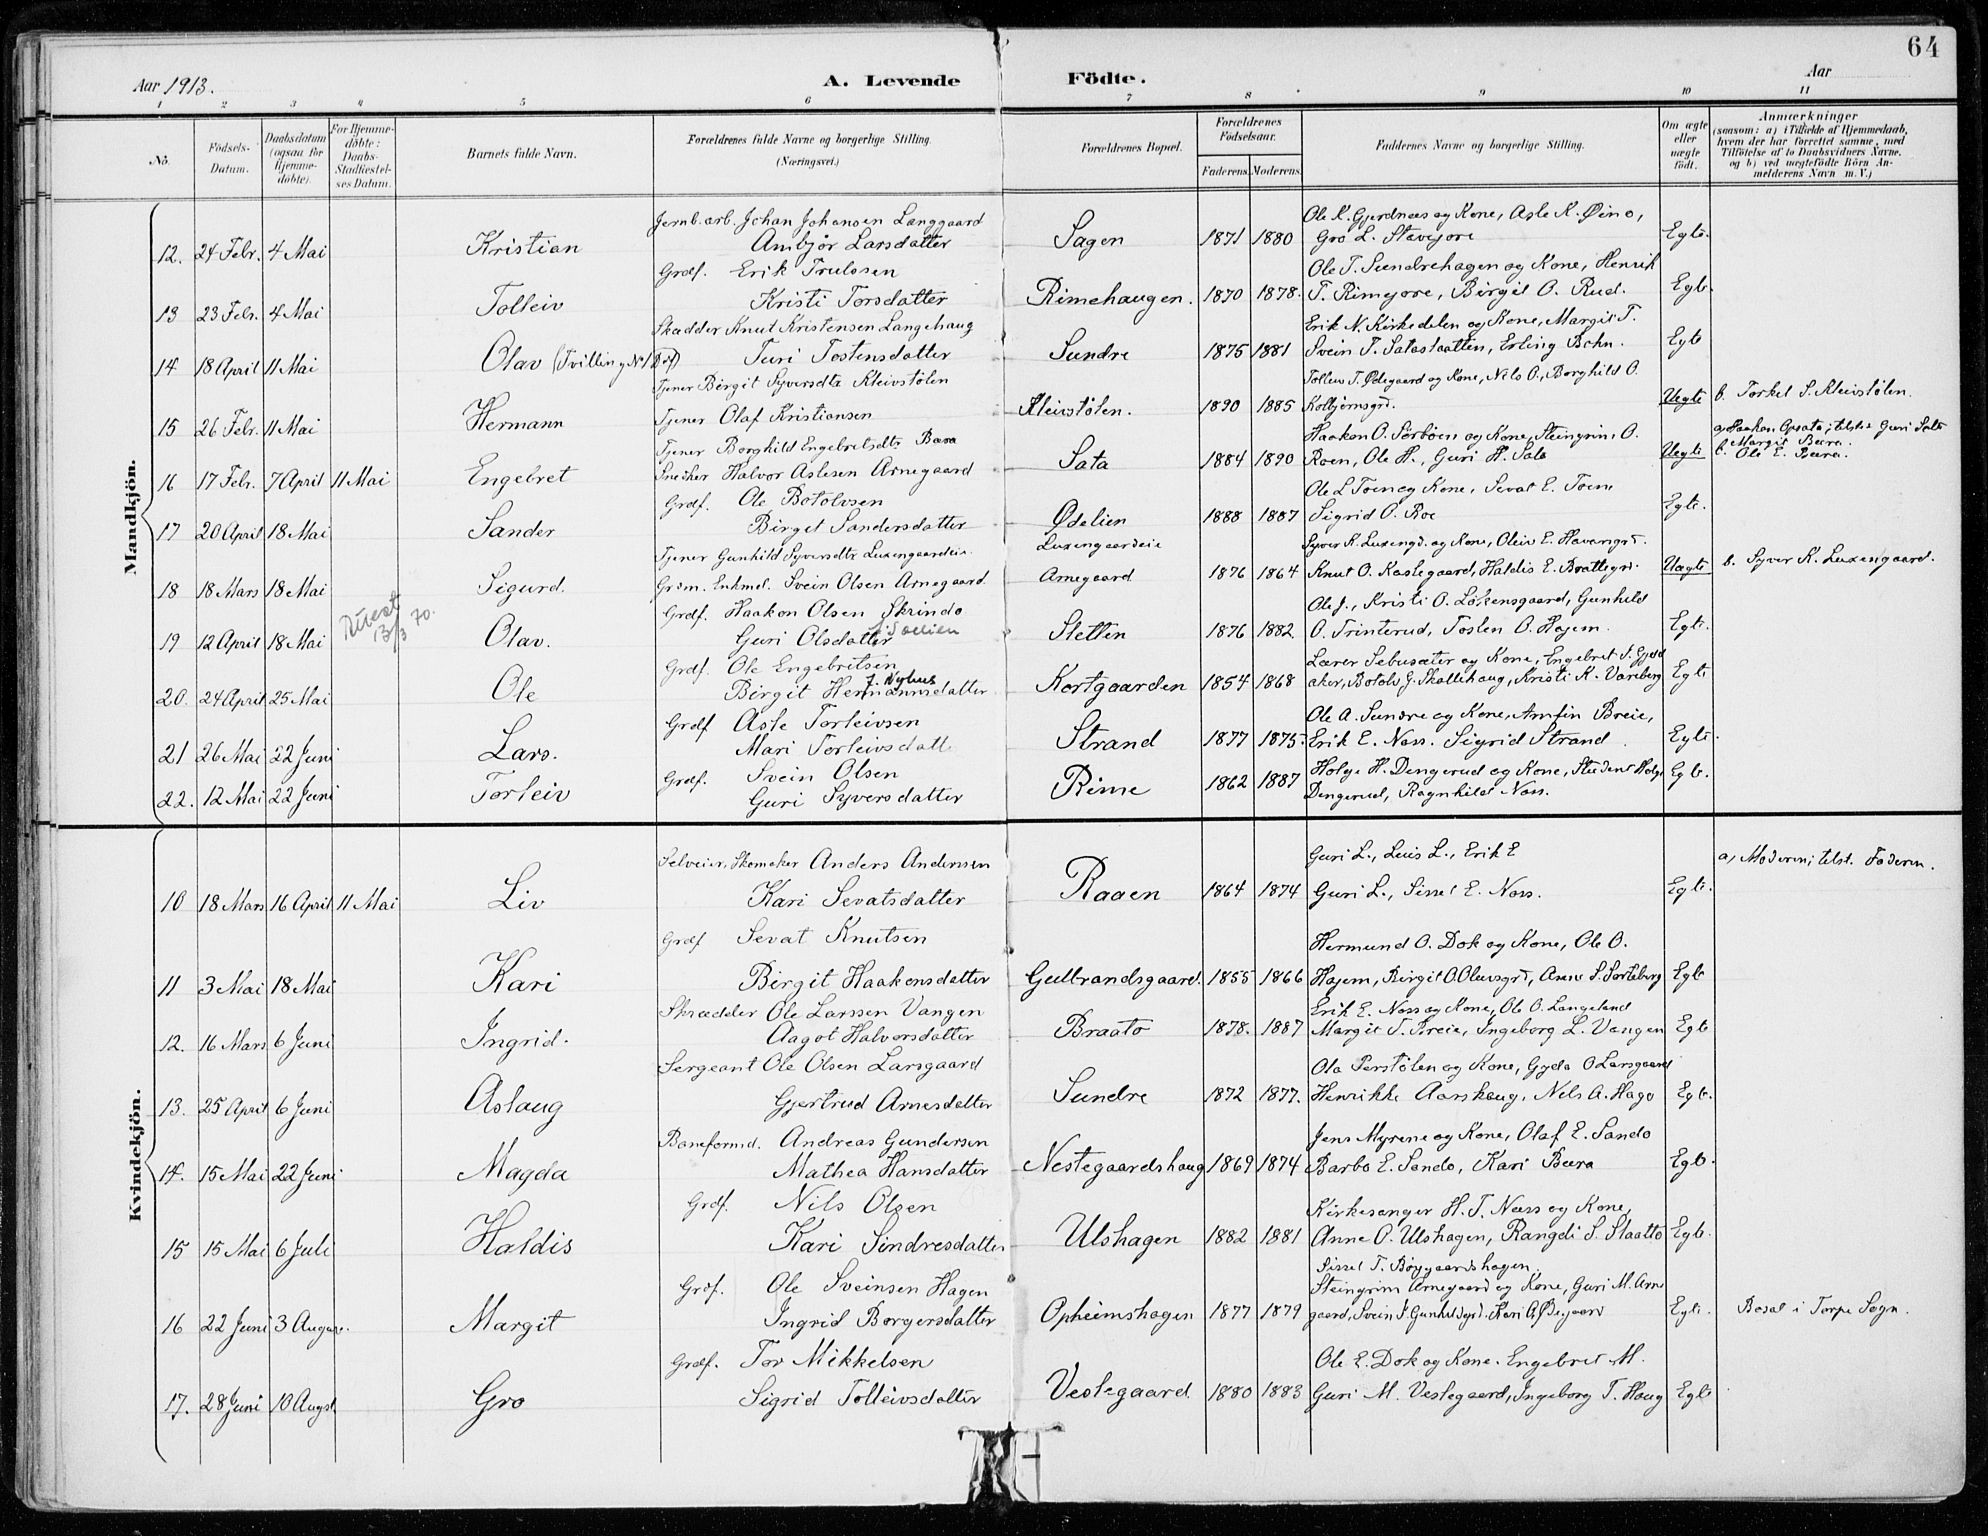 64
Aar 1913.
A. Levende Födte.
Aar
1 2 3 4 5 6 7 8 9 10 11
No. Födsels-Datum. Daabsdatum (ogsaa for Hjemme-döbte). For Hjemme-döbte: Daabs-Stadfæstel-ses Datum. Barnets fulde Navn. Forældrenes fulde Navne og borgerlige Stilling. (Næringsvei.) Forældrenes Bopæl. Forældrenes Födselsaar. Faderens. Moderens. Faddernes Navne og borgerlige Stilling. Om ægte eller uægte födt. Anmærkninger (saasom: a) i Tilfælde af Hjemmedaab, hvem der har forrettet samme, med Tilföielse af to Daabsvidners Navne, og b) ved uægtefödte Börn An-melderens Navn m. V.)
Mandkjön.
Jernb.arb. Johan Johansen Langgaard Ole K. Gjerdnæs og Kone, Asle K. Øino,
12. 24 Febr. 4 Mai Kristian Ambjør Larsdatter Sagen 1871 1880 Gro L. Stavejore Egte.
Grdf. Erik Trulssen Ole T. Sundrehagen og Kone, Henrik
13 23 Febr. 4 Mai Tolleiv Kristi Torsdatter Rimehaugen. 1870 1878. T. Rimejore, Birgit O. Rud. Egt.
Skrædder Knut Kristensen Langehaug Erik N. Kirkedelen og Kone, Margit T.
14 18 April 11 Mai Olav (Tvilling Turi Tostensdatter Sundre 1875 1881 Svein T. Satastaatten, Erling Bohn. Egte
Tjener Birgit Syversdtr Kleivstølen Tolleiv T. Ødegaard og Kone, Nils O., Borghild O.
15 26 Febr. 11 Mai Hermann Tjener Olaf Kristiansen Kleivstølen. 1890 1885 Kolbjørnsgrd. Uegte b. Torkel S. Kleivstølen.
Tjener Borghild Engebretsdtr Bæra Haakon O. Sørbøen og Kone, Steingrim O. a, Haakon Opsata; tilst: Guri Sata Margit Bæra.
16 17 Febr. 7 April 11 Mai Engebret Snedker Halvor Aslesen Arnegaard Sata 1884 1890 Roen, Ole H., Guri H. Sata Uegte b. Ole E. Bæra.
Grdf. Ole Botolvsen Ole L Toen og Kone, Sevat E. Toen
17 20 April 18 Mai Sander Birgit Sandersdatter Ødelien 1888 1887 Sigrid O. Roe Egte.
Tjener Gunhild Syversdtr Luxengaardeie Luxengaardeie Syver K. Luxengd. og Kone, Oleiv E. Havarsgrd.
18 18 Mars 18 Mai Sigurd. Grdm. Enkmd. Svein Olsen Arnegaard. Arnegaard 1876 1864 Knut O. Kastegaard, Haldis E. Brattegrd. Uægte b. Syver K. Luxengaard.
Grdf. Haakon Olsen Skrindo Ole J., Kristi O. Løkensgaard, Gunhild
19 12 April 18 Mai 13/3 70. Olav. Guri Olsdatter Sletten 1876 1882 O. Trinterud, Tosten O. Hajem. Egte.
Grdf. Ole Engebritsen Lærer Sebusæter og Kone, Engebret S. Gjeld
20. 24 April 25 Mai Ole Birgit Hermannsdatter f. Nyhus Kortgaarden 1854 1868 aker, Botolv G. Skallehaug, Kristi K. Vareberg Egte
Grdf Asle Torleivsen Ole A. Sundre og Kone, Arnfin Breie,
21 26 Mai 22 Juni Lars. Mari Torleivsdatt. Strand 1877 1875. Erik E. Næss. Sigrid Strand. Egte.
Grdf. Svein Olsen Holge H. Dengerud og Kone, Student Holge
22. 12 Mai 22 Juni Torleiv Guri Syversdatter Rime 1862 1887 Dengerud, Ragnhild Næss. Egte.
Kvindekjön.
Selveier, Skomaker Anders Andersen Guri L., Leris L., Erik E a, Moderen; tilst. Faderen.
10 18 Mars 16 April 11 Mai Liv Kari Sevatsdatter Raaen 1864 1874 Guri L., Sissel E. Næss. Egte.
Grdf Sevat Knutsen Hermund O. Dok og Kone, Ole O.
11 3 Mai 18 Mai Kari Birgit Haakonsdatter Gulbrandsgaard. 1855 1866 Hajem, Birgit O. Olavsgrd, Anne S. Sorteberg Egte
Skrædder Ole Larssen Vangen Erik E. Næss og Kone, Ole O. Langeland
12. 16 Mars 6 Juni Ingrid. Aagot Halvorsdatter Braato 1878. 1887 Margit T. Breie, Ingeborg L. Vangen Egte
Sergeant Ole Olsen Larsgaard Ola Perstølen og Kone, Gyda O Larsgaard
13. 25 April 6 Juni Aslaug Gjertrud Arnesdatter Sundre 1872 1877. Henrikke Aarskaug, Nils A. Hago Egte.
Baneformd. Andreas Gundersen Jens Myrene og Kone, Olaf E. Sando
14. 15 Mai 22 Juni Magda Mathea Hansdatter Nestegaardshaug 1869 1874 Barbo E. Sando, Kari Bæra Egte.
Grdf. Nils Olsen Kirkesanger H. T. Næss og Kone,
15 15 Mai 6 Juli Haldis Kari Sindresdatter Ulshagen 1882 1881 Anne O. Ulshagen, Rangdi S. Staatto Egte.
Sissel T. Bøygaardshagen.
Grdf. Ole Sveinsen Hagen Steingrim Arnegaard og Kone, Guri M. Arne
16 22 Juni 3 August. Margit Ingrid Borgersdatter Opheimshagen 1877 1879 gaard, Svein J. Gunhildgrd. Kari A. Egte. Bosat i Torpe Sogn.
Grdf. Tor Mikkelsen Ole E. Dok og Kone. Engebret M.
17. 28 Juni 10 Augst. Gro Sigrid Tolleivsdatter Vestegaard 1880 1883 Guri M. Vestegaard, Ingeborg T. Haug Egte